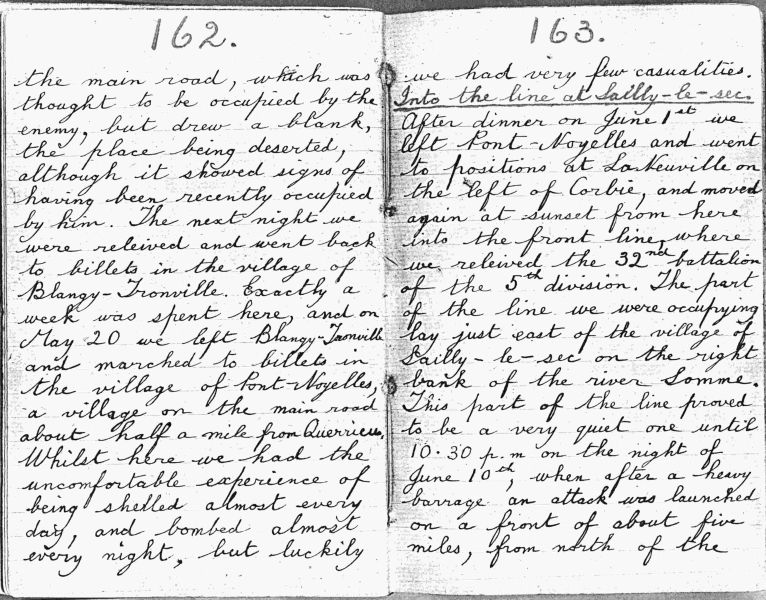 162.
the main road, which was
thought to be occupied by the
enemy, but drew a blank,
the place being deserted,
although it showed signs of
having been recently occupied
by him. The next night we
were releived and went back
to billets in the village of
Blangy-Tronville. Exactly a
week was spent here, and on
May 20 we left Blangy-Tronville
and marched to billets in
the village of Pont-Noyelles,
a village on the main road
about half a mile from Querrieu,
Whilst here we had the
uncomfortable experience of
being shelled almost every
day, and bombed almost
every night, but luckily
163.
we had very few casualities.
Into the line at Sailly-le-sec.
After dinner on June 1st we
left Pont-Noyelles and went
to positions at La Neuville on
the left of Corbie, and moved
again at sunset from here
into the front line, where
we releived the 32nd battalion
of the 5th division. The part
of the line we were occupying
lay just east of the village of
Sailly-le-sec on the right
bank of the river Somme.
This part of the line proved
to be a very quiet one until
10.30 p.m on the night of
June 10th, when after a heavy
barrage an attack was launched
on a front of about five
miles, from north of the